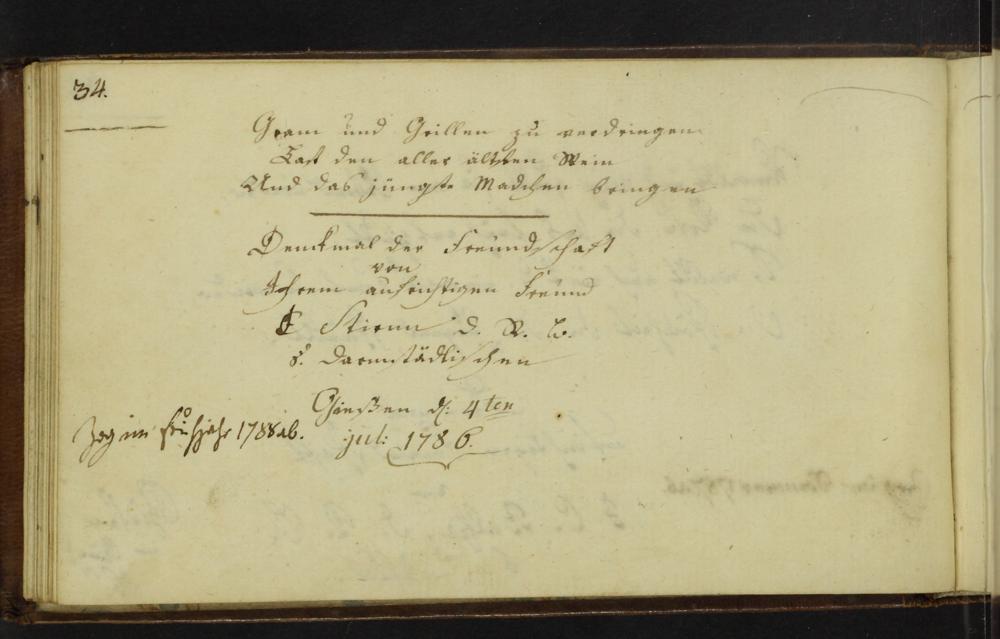 34.
Gram und Grillen zu verdringen
Last den aller ältsten Wein
Und das jüngste Madchen bringen
Denckmal der Freundschaft
von
Ihrem aufrichtigen Freund
Stirnn d. R. b.
darmstädtischen
Gießen d. 4ten
jul: 1786.
Zog im Frühjahr 1788 ab.